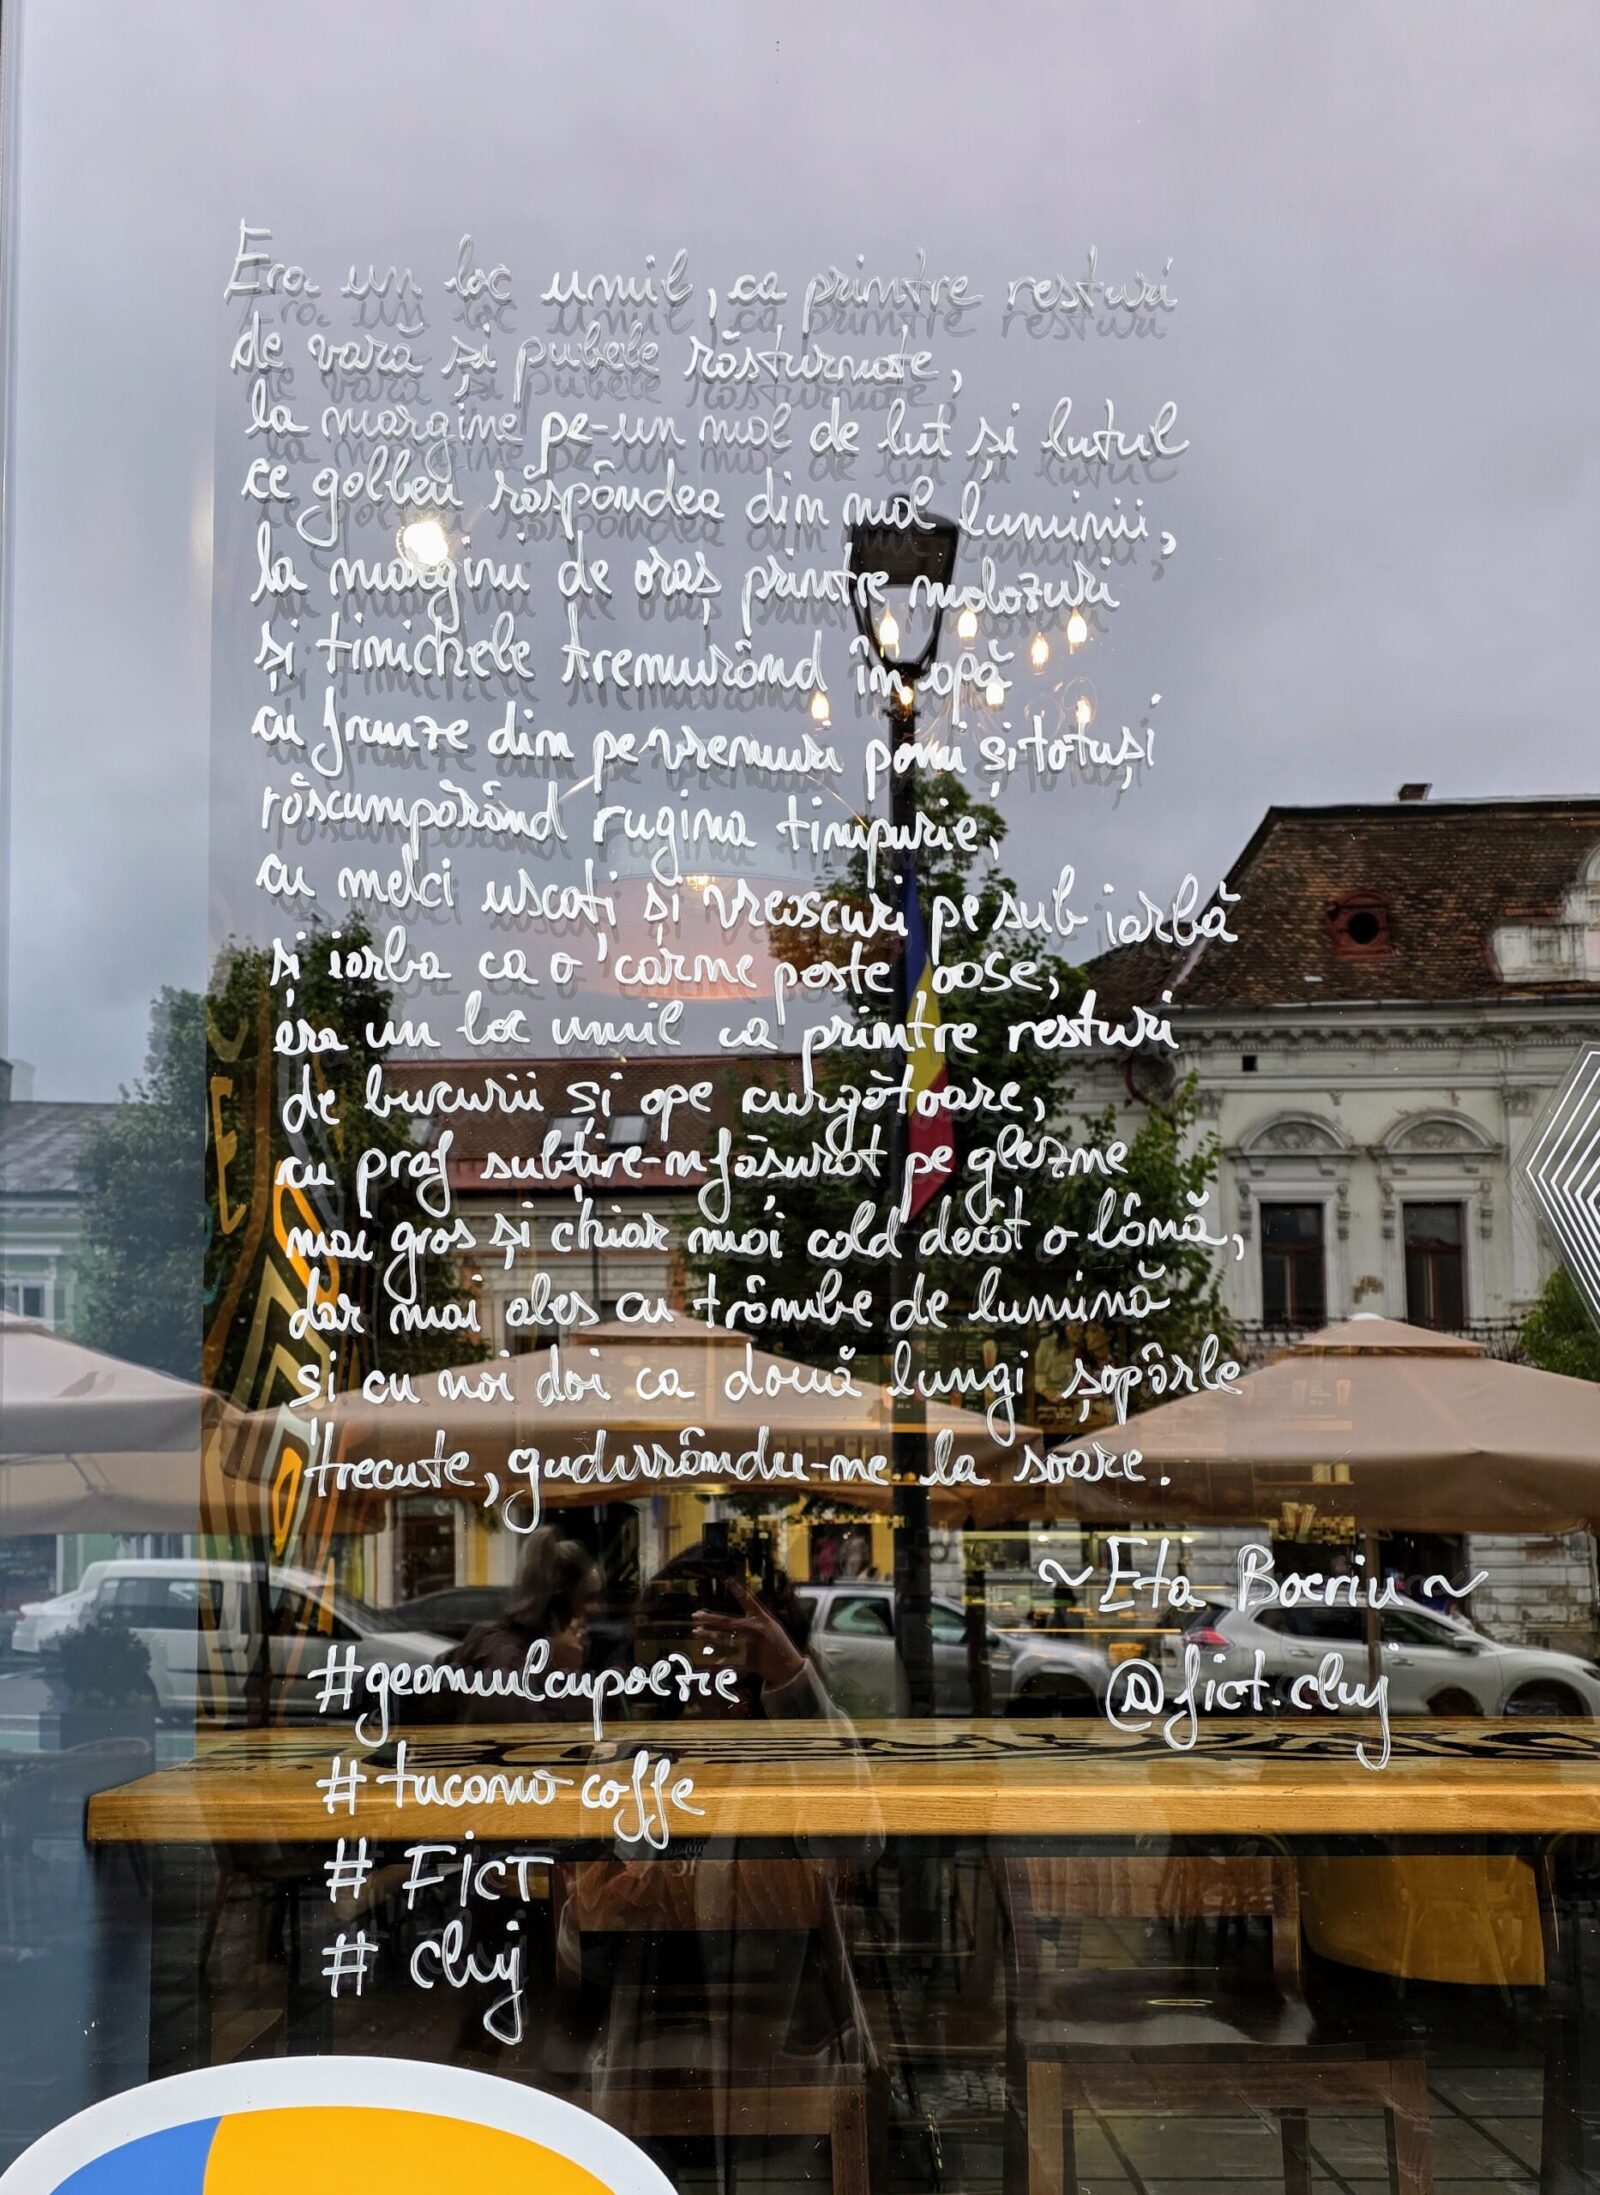 Era un loc umil, ca printre resturi
de vară și pubele răsturnate,
la margine pe-un mal de lut și lutul
ce galben răspândea din mal luminii,
la margini de oraș printre molozuri
și tinichele tremurând în apă
cu frunze din pe vremuri pomi și totuși
răscumpărând rugina timpurie,
cu melci uscați și vreascuri pe sub iarbă
și iarba ca o carne peste oase,
era un loc umil ca printre resturi
de bucurii și ape curgătoare,
cu praf subțire-nfășurat pe glezne
mai gros și chiar mai cald decât o lână,
dar mai ales cu trâmbe de lumină
și cu noi doi ca două lungi șopârle
trecute, gudurându-ne la soare.
~ Eta Boeriu ~
@fict.cluj
#geamulcupoezie
# tucano coffe
# FicT
# cluj